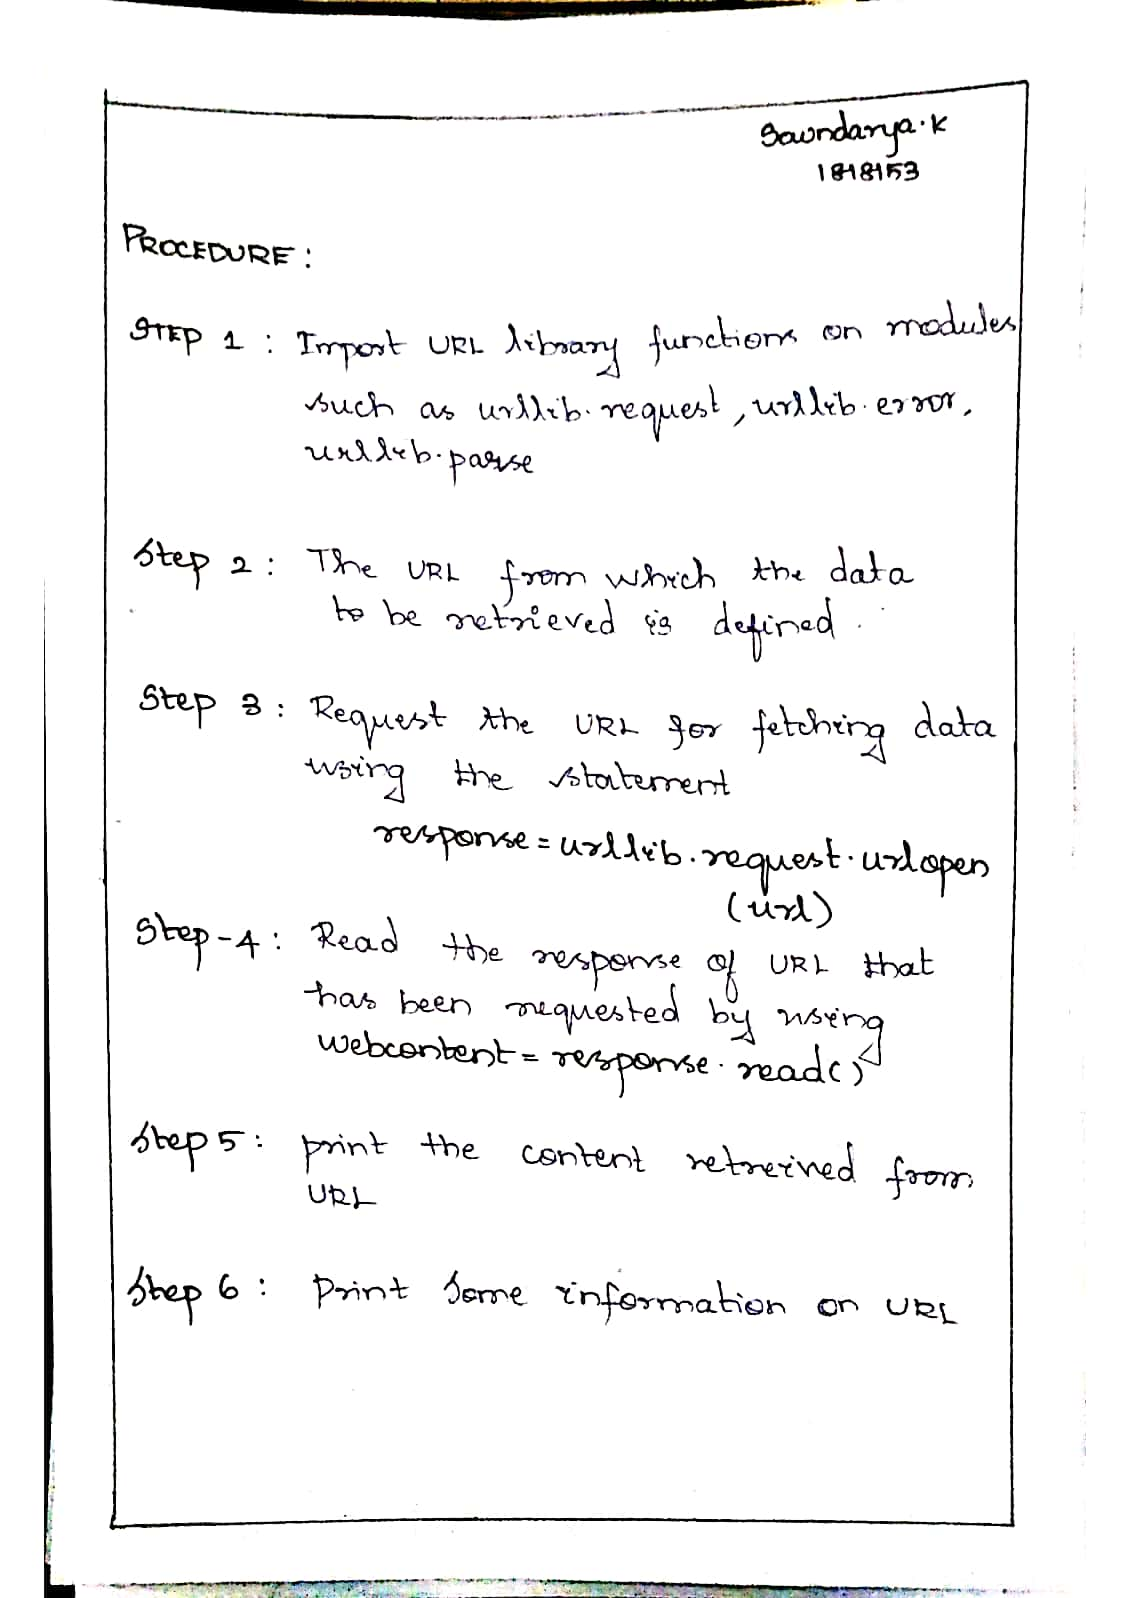 Soundarya.K
1818153
PROCEDURE :
STEP 1 : Import URL library functions on modules
such as urllib.request, urllib.error,
urllib.parse
Step 2 : The URL from which the data
to be retrieved is defined.
Step 3 : Request the URL for fetching data
using the statement
response = urllib.request.urlopen
(url)
Step-4 : Read the response of URL that
has been requested by using
webcontent = response.read()
Step 5 : print the content retreived from
URL
Step 6 : Print some information on URL